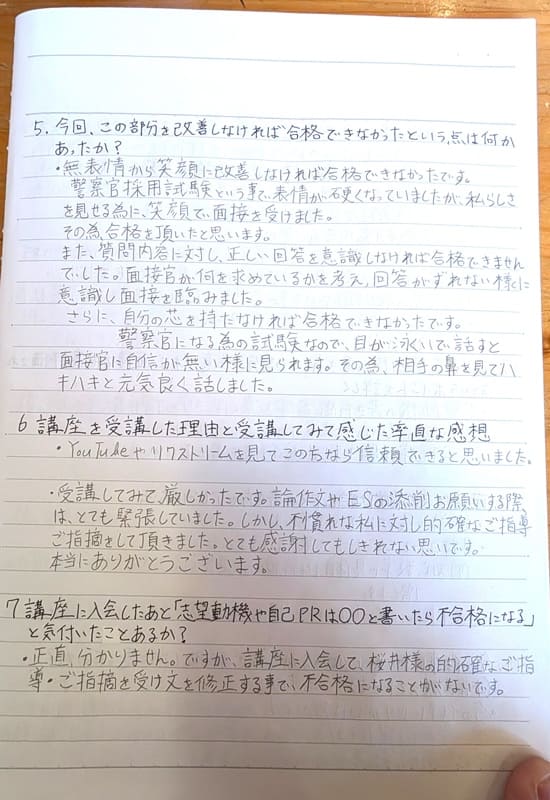 5. 今回、この部分を改善しなければ合格できなかったという点は何か
あったか？
・無表情から笑顔に改善しなければ合格できなかったです。
警察官採用試験という事で、表情が硬くなっていましたが、私らしさ
を見せる為に、笑顔で面接を受けました。
その為合格を頂いたと思います。
また、質問内容に対し、正しい回答を意識しなければ合格できません
でした。面接官が何を求めているかを考え、回答がずれない様に
意識し面接を臨みました。
さらに、自分の芯を持たなければ合格できなかったです。
警察官になる為の試験なので、目が泳いで、話すと
面接官に自信が無い様に見られます。その為、相手の鼻を見てハ
キハキと元気良く話しました。
6 講座を受講した理由と受講してみて感じた率直な感想
・YouTubeやリクストリームを見てこの方なら信頼できると思いました。
・受講してみて、厳しかったです。論作文やESの添削お願いする際
は、とても緊張していました。しかし、不慣れな私に対し的確なご指導
ご指摘をして頂きました。とても感謝してもしきれない思いです。
本当にありがとうございます。
7 講座に入会したあと「志望動機や自己PRは〇〇と書いたら不合格になる」
と気付いたことあるか？
・正直、分かりません。ですが、講座に入会して、桜井様の的確なご指
導・ご指摘を受け文を修正する事で、不合格になることがないです。